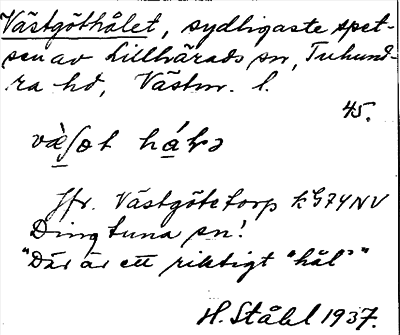 Västgöthålet, sydligaste spet-
sen av Lillhärads sn, Tuhund-
ra hd, Västm. l.
45.
Jfr. Västgötetorp k G74NV
Dingtuna sn!
"Där är ett riktigt "hål""
H. Ståhl 1937.